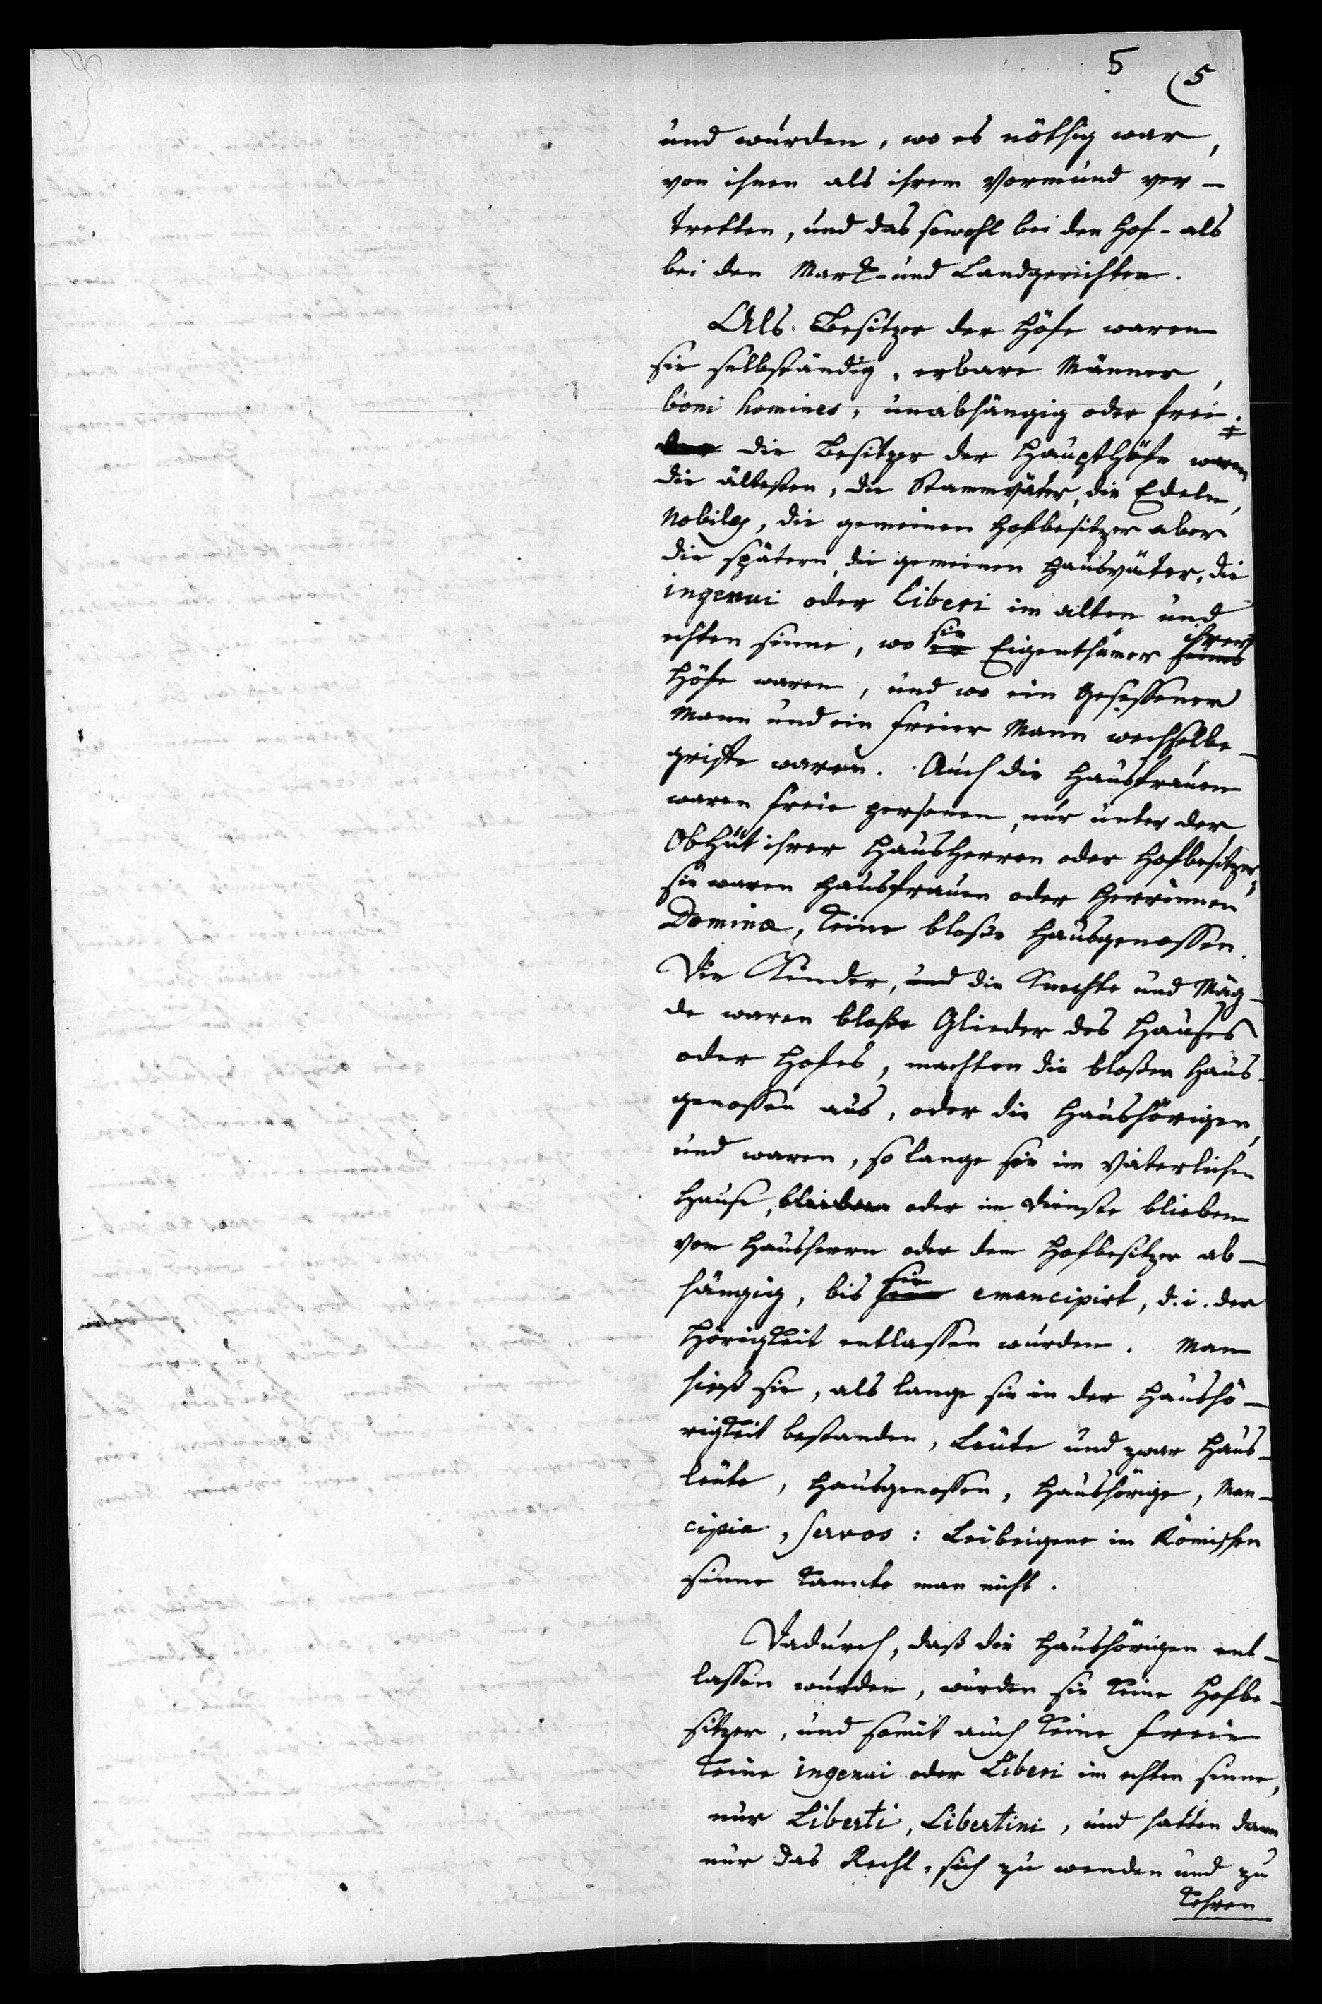 5 (5
und wurden, wo es nöthig war,
von ihnen als ihrem Vormund ver-
tretten, und das sowohl bei den Hof- als
bei den Mark- und Landgerichten.
Als Besitzer der Höfe waren
sie selbständig, erbare Männer,
boni homines, unabhängig oder frei.
die Besitzer der Haupthöfe waren
die ältesten, die Stammväter, die Edeln,
Nobiles, die gemeinen Hofbesitzer aber
die spätern, die gemeinen Hausväter, die
ingenui oder Liberi im alten und
echten sinne, wo sie Eigenthümer ihrer
Höfe waren, und wo ein Gesessener
Mann und ein freier Mann wechselbe-
griffe waren. Auch die Hausfrauen
waren freie personen, nur unter der
Obhut ihrer Hausherren oder Hofbesitzer,
sie waren Hausfrauen oder Herrinnen
Dominæ, keine bloße Hausgenossen.
Die Kinder, und die Knechte und Mäg-
de waren bloße Glieder des Hauses
oder Hofes, machten die bloßen Haus-
genossen aus, oder die Haushörigen,
und waren, so lange sie im Väterlichen
Hause, oder im Dienste blieben
vom Hausherrn oder dem Hofbesitzer ab-
hängig, bis sie emancipirt, d. i. der
Hörigkeit entlassen wurden. Man
hieß sie, als lange sie in der Haushö-
rigkeit bestanden, Leute und zwar Haus-
leute, Hausgenossen, Haushörige, Man-
cipia, servos: Leibeigene im Römischen
sinne kannte man nicht.
Dadurch, daß die Haushörigen ent-
lassen wurden, wurden sie keine Hofbe-
sitzer, und somit auch keine freie
keine ingenui oder Liberi im echten sinne,
nur Liberti, Libertini, und hatten dann
nur das Recht, sich zu wenden und zu
kehren